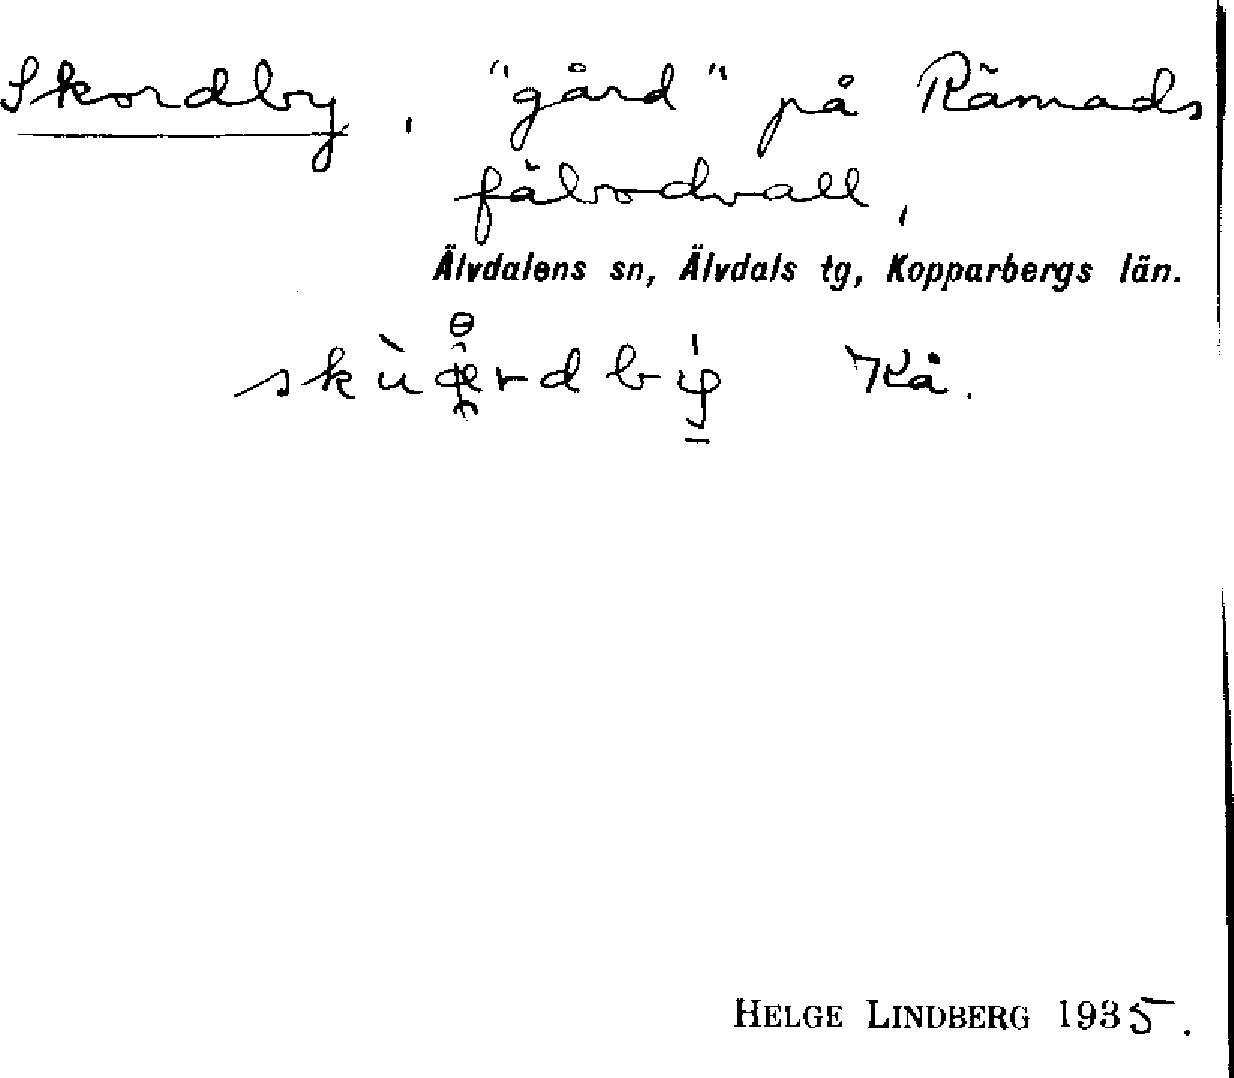 Skordby, "gård" på Rämads
fäbodvall,
Älvdalens sn, Älvdals tg, Kopparbergs län.
Kå.
HELGE LINDBERG 1935.